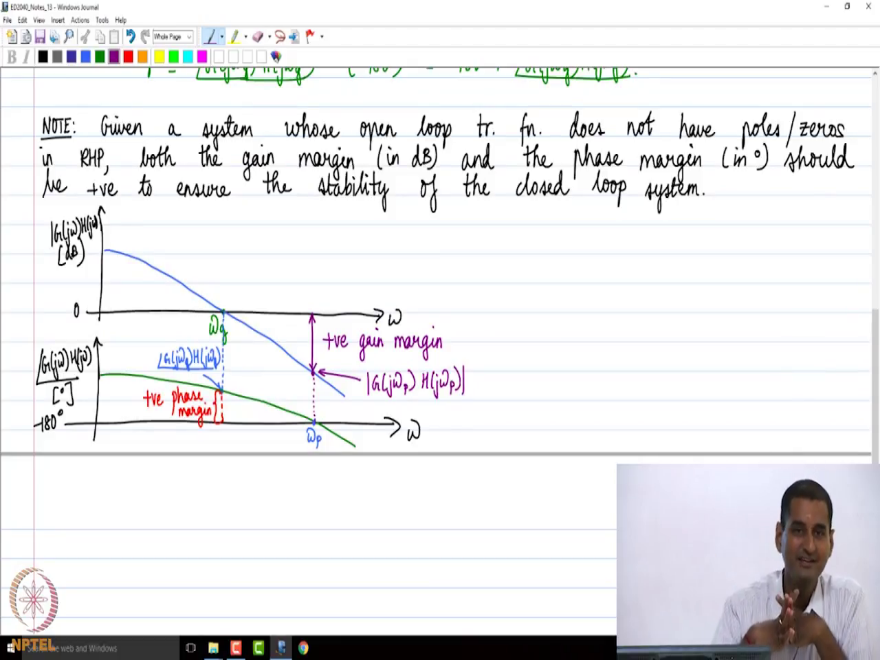 ED2040_Notes_13 - Windows Journal
File Edit View Insert Actions Tools Help
Whole Page
B I
NOTE: Given a system whose open loop tr. fn. does not have poles/zeros
in RHP, both the gain margin (in dB) and the phase margin (in °) should
be +ve to ensure the stability of the closed loop system.
|G(jω)H(jω)|
[dB]
0
ω
ωg
+ve gain margin
|G(jωp) H(jωp)|
∠G(jω)H(jω)
[°]
∠G(jωg)H(jωg)
+ve phase
margin
-180°
ωp
ω
NPTEL
the web and Windows